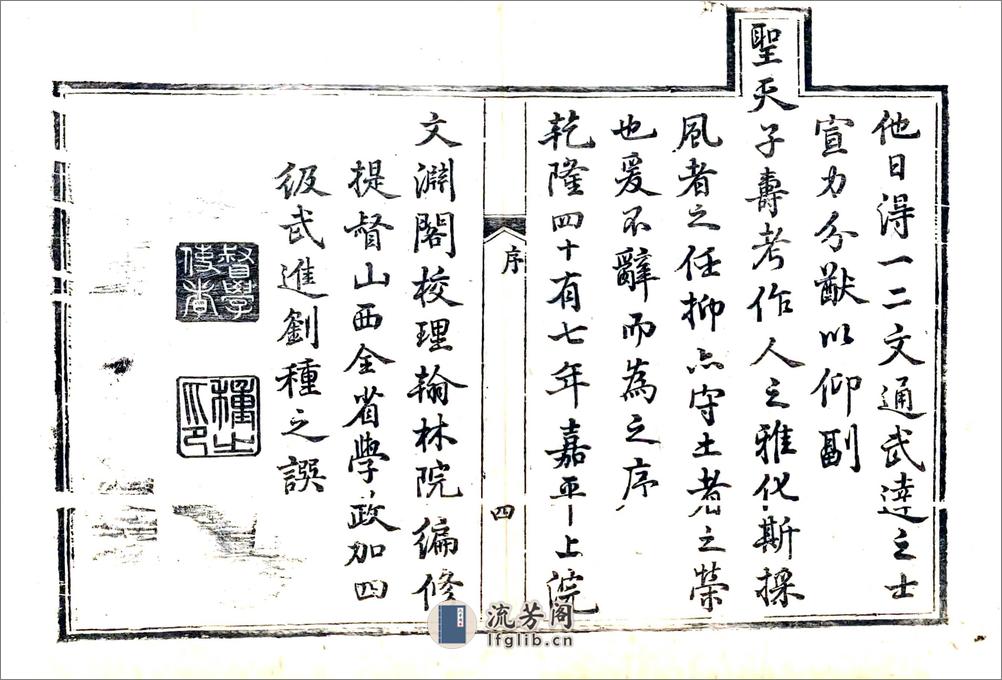 他日得一二文通武達之士
宣力分猷以仰副
聖天子壽考作人之雅化斯採
風者之任抑亦守土者之榮
也爰不辭而為之序
乾隆四十有七年嘉平上浣
序
四
文淵閣校理翰林院編修
提督山西全省學政加四
級武進劉種之譔
督學使者
種之印
流芳阁
lfglib.cn